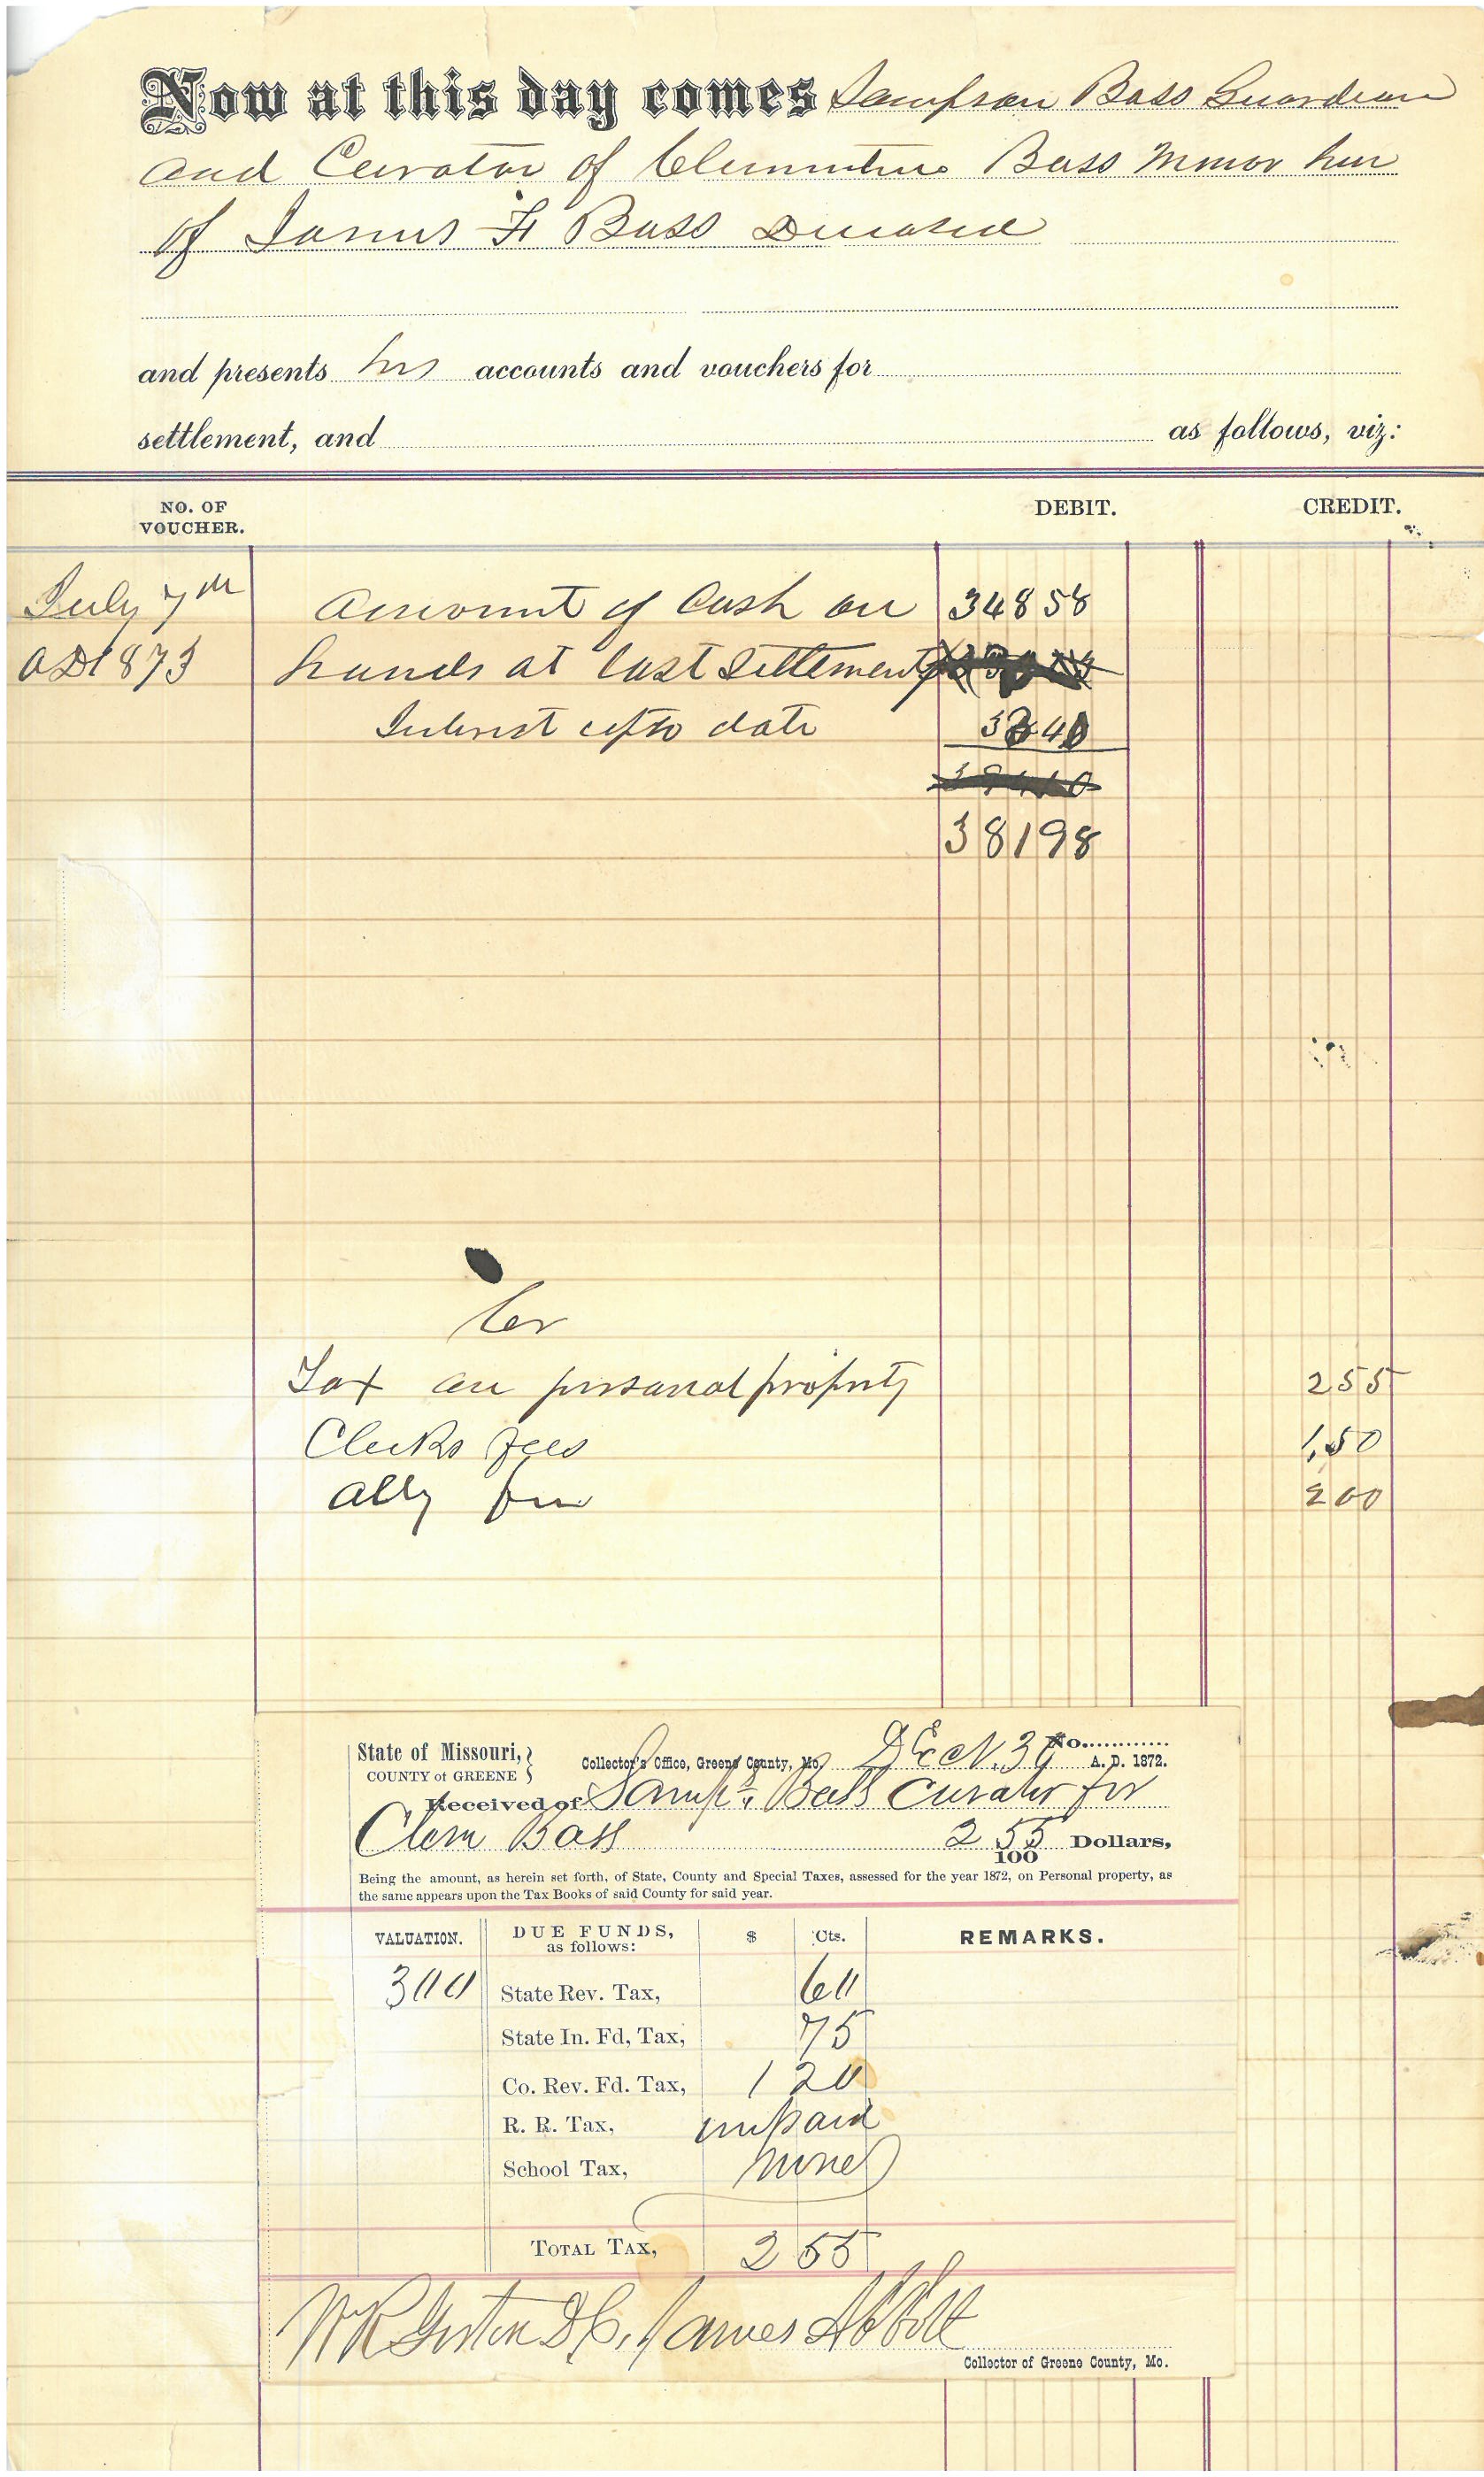 Now at this day comes Sampson Bass Guardian
and Curator of Clementine Bass Minor heir
of James F Bass Deceased
and presents his accounts and vouchers for
settlement, and as follows, viz:
NO. OF VOUCHER. DEBIT. CREDIT.
July 7th Amount of Cash on 348 58
AD 1873 hands at last Settlement
Interest up to date 33 40
381 98
Cr
Tax on personal property 2 55
Clerks fees 1,50
Atty fee 2 00
State of Missouri, COUNTY of GREENE
No.
Collector's Office, Greene County, Mo. A. D. 1872.
Received of Samp. Bass Curator for
Clem Bass 2 55/100 Dollars,
Being the amount, as herein set forth, of State, County and Special Taxes, assessed for the year 1872, on Personal property, as
the same appears upon the Tax Books of said County for said year.
VALUATION. DUE FUNDS, as follows: $ Cts. REMARKS.
300 State Rev. Tax, 60
State In. Fd, Tax, 75
Co. Rev. Fd. Tax, 1 20
R. R. Tax, unpaid
School Tax, none
TOTAL TAX, 2 55
James Abbott
Collector of Greene County, Mo.